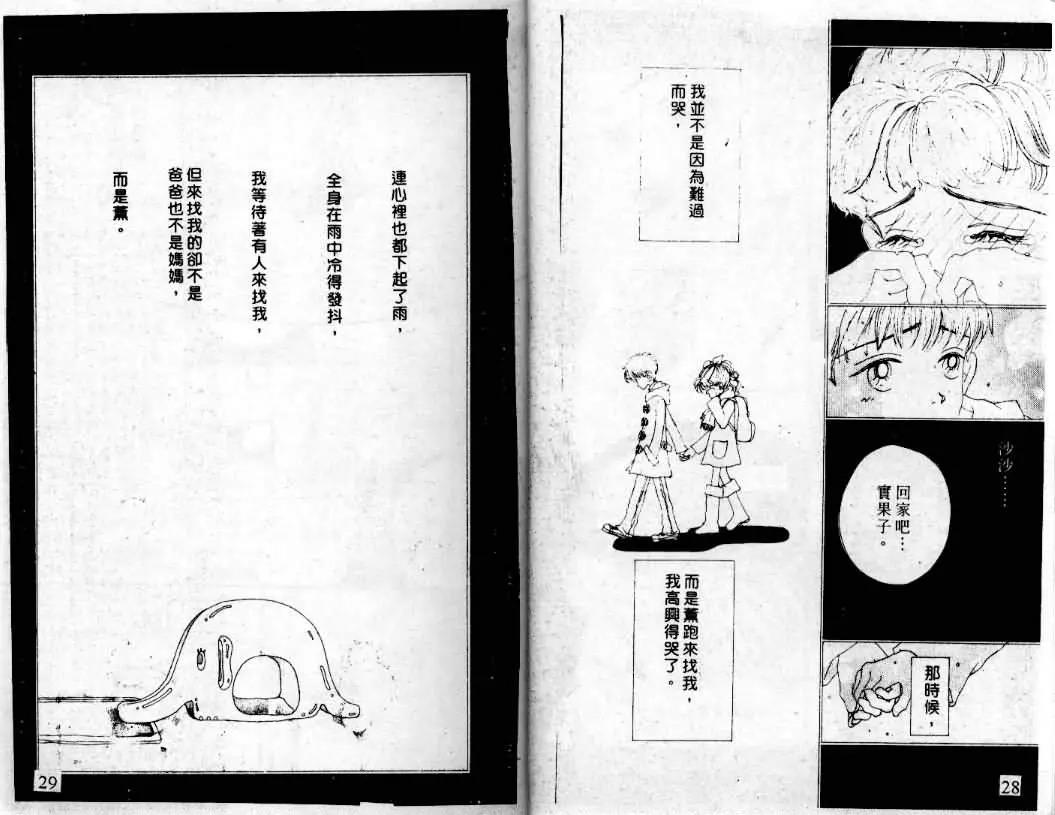 沙沙……
回家吧…
實果子。
那時候,
我並不是因為難過
而哭,
而是薰跑來找我,
我高興得哭了。
28
連心裡也都下起了雨,
全身在雨中冷得發抖,
我等待著有人來找我,
但來找我的卻不是
爸爸也不是媽媽,
而是薰。
29